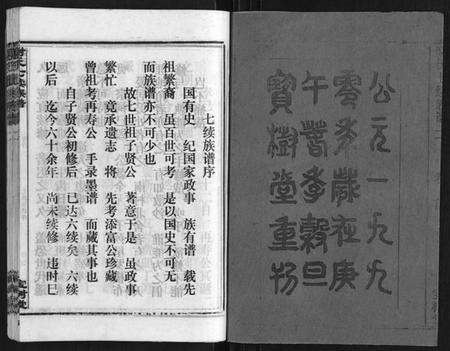 公元一九九
零年歲在庚
午暮春穀旦
寶樹堂重刊
七续族谱序
国有史 纪国家政事 族有谱 载先
祖繁裔 虽百世可考 是以国史不可无
而族谱亦不可少也
故七世祖子贤公 著意于是 虽政事
繁忙 竟承遗志 将 先考添富公珍藏
曾祖考再寿公 手录墨谱 而藏其事也
自子贤公初修后 已达六续矣 六续
以后 迄今六十余年 尚未续修 违时已